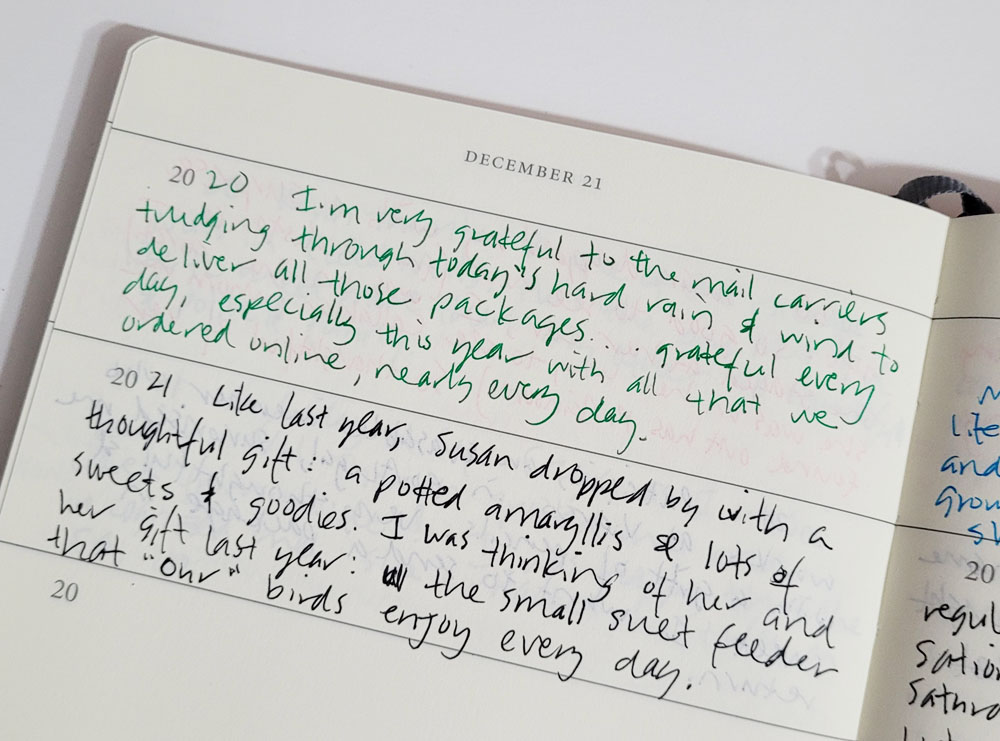 DECEMBER 21
2020 I'm very grateful to the mail carriers
trudging through today's hard rain & wind to
deliver all those packages... grateful every
day, especially this year with all that we
ordered online, nearly every day.
2021 Like last year, Susan dropped by with a
thoughtful gift: a potted amaryllis & lots of
sweets & goodies. I was thinking of her and
her gift last year: the small suet feeder
that "our" birds enjoy every day.
20
and
20